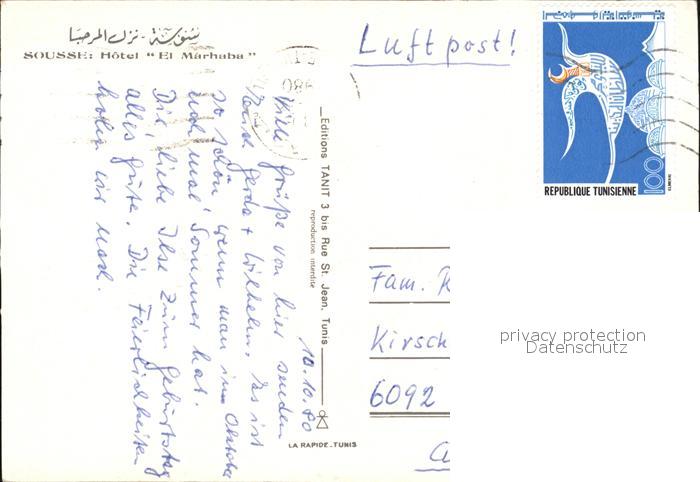 سوسة - نزل المرحبا
SOUSSE: Hôtel " El Marhaba "
Luftpost!
REPUBLIQUE TUNISIENNE
100
Editions TANIT 3 bis Rue St. Jean, Tunis
reproduction interdite
LA RAPIDE-TUNIS
10.10.80
Viele Grüße von hier senden
Gerda + Wilhelm. Es ist
so schön, wenn man im Oktober
noch mal Sommer hat.
Dir liebe Ilse zum Geburtstag
alles Gute. Die Feierlichkeiten
holen wir nach.
Fam.
Kirsch
6092
privacy protection
Datenschutz